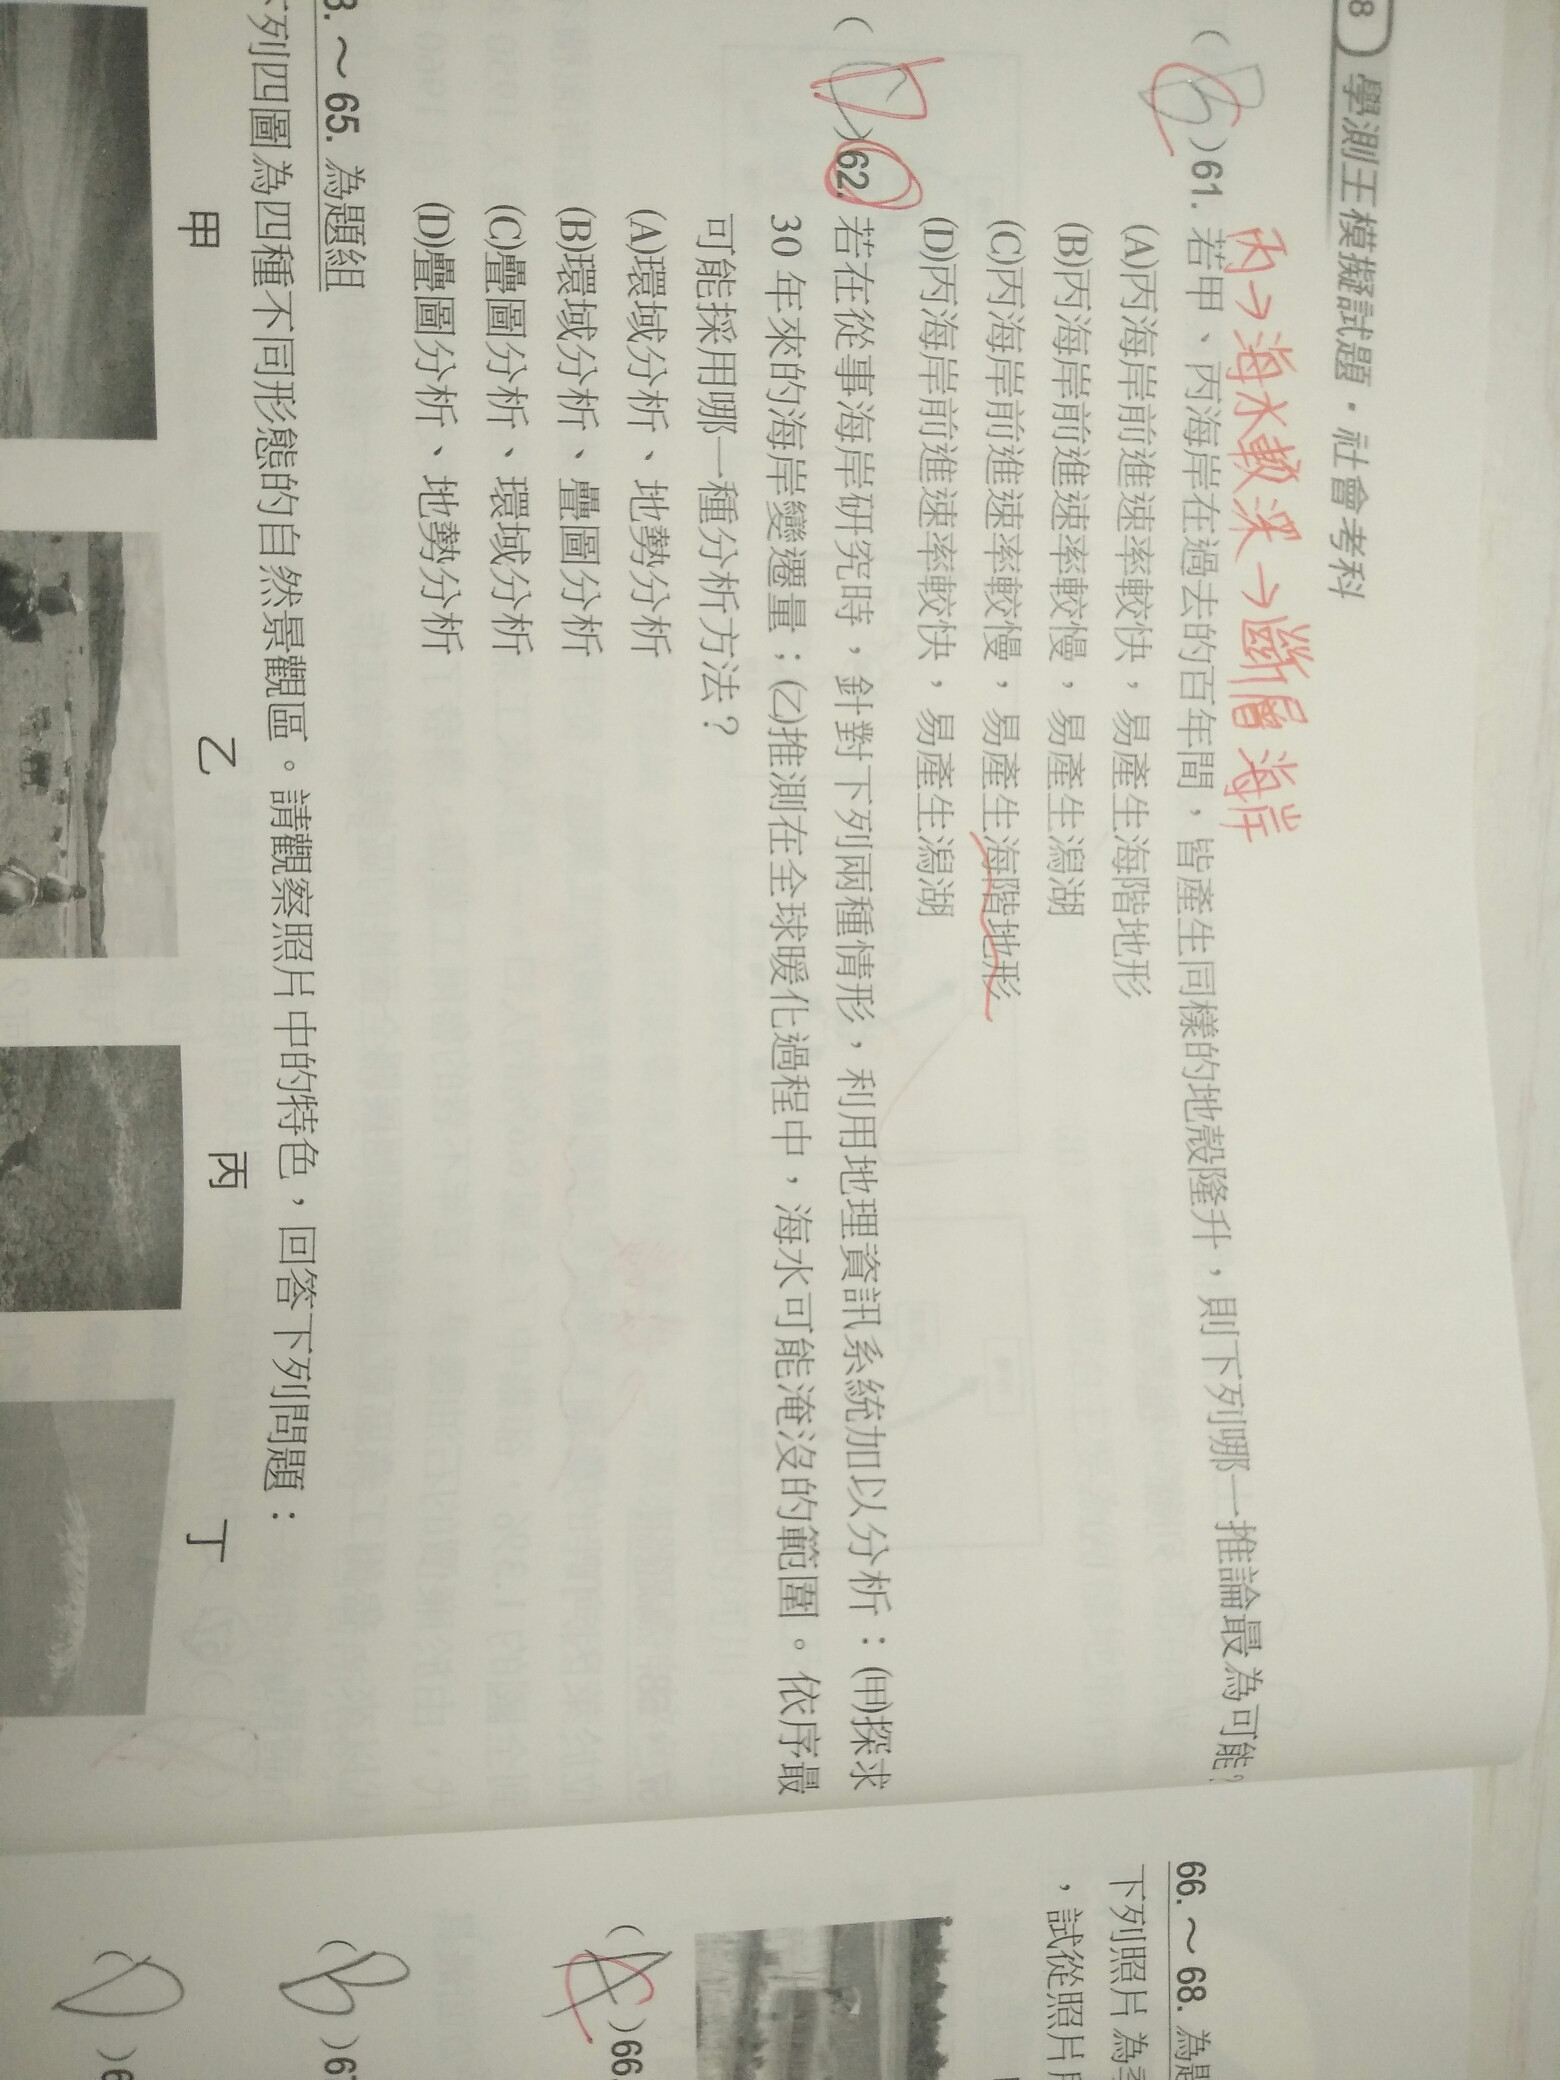 8 學測王模擬試題・社會考科
丙→海水較深→斷層海岸
( B C )61. 若甲、丙海岸在過去的百年間，皆產生同樣的地殼隆升，則下列哪一推論最為可能？
(A)丙海岸前進速率較快，易產生海階地形
(B)丙海岸前進速率較慢，易產生潟湖
(C)丙海岸前進速率較慢，易產生海階地形
(D)丙海岸前進速率較快，易產生潟湖
( D )62. 若在從事海岸研究時，針對下列兩種情形，利用地理資訊系統加以分析：(甲)探求
30 年來的海岸變遷量；(乙)推測在全球暖化過程中，海水可能淹沒的範圍。依序最
可能採用哪一種分析方法？
(A)環域分析、地勢分析
(B)環域分析、疊圖分析
(C)疊圖分析、環域分析
(D)疊圖分析、地勢分析
3.～65. 為題組
下列四圖為四種不同形態的自然景觀區。請觀察照片中的特色，回答下列問題：
甲 乙 丙 丁
66.～68. 為題
下列照片為
，試從照片
( A C )66.
( B )6
( D )6